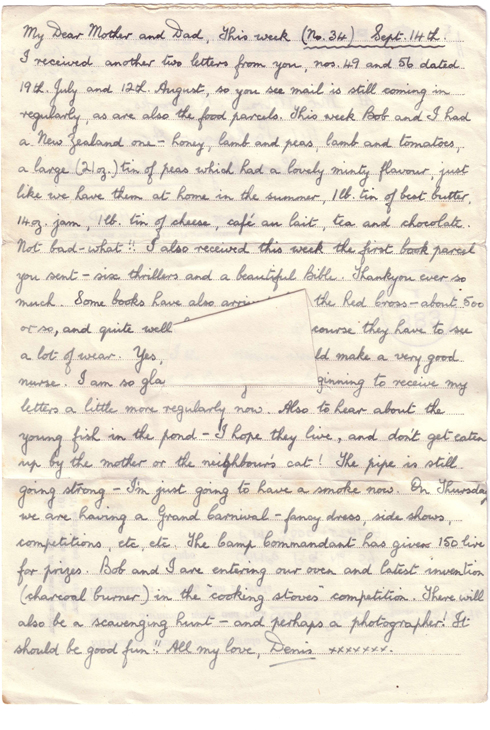 My Dear Mother and Dad, This week (No. 34) Sept. 14th.
I received another two letters from you, nos. 49 and 56 dated
19th. July and 12th. August, so you see mail is still coming in
regularly, as are also the food parcels. This week Bob and I had
a New Zealand one - honey, lamb and peas, lamb and tomatoes,
a large (21oz.) tin of peas which had a lovely minty flavour, just
like we have them at home in the summer, 1lb. tin of best butter,
14oz. jam, 1lb. tin of cheese, café au lait, tea and chocolate.
Not bad - what!! I also received this week the first book parcel
you sent - six thrillers and a beautiful Bible. Thankyou ever so
much. Some books have also the Red Cross - about 500
or so, and quite well course they have to see
a lot of wear. Yes, ld make a very good
nurse. I am so gla ginning to receive my
letters a little more regularly now. Also to hear about the
young fish in the pond - I hope they live, and don't get eaten
up by the mother or the neighbour's cat! The pipe is still
going strong - I'm just going to have a smoke now. On Thursday
we are having a Grand Carnival - fancy dress, side shows,
competitions, etc, etc. The Camp Commandant has given 150 lire
for prizes. Bob and I are entering our oven and latest invention
(charcoal burner) in the "cooking stoves" competition. There will
also be a scavenging hunt - and perhaps a photographer! It
should be good fun!! All my love, Denis xxxxxxx.